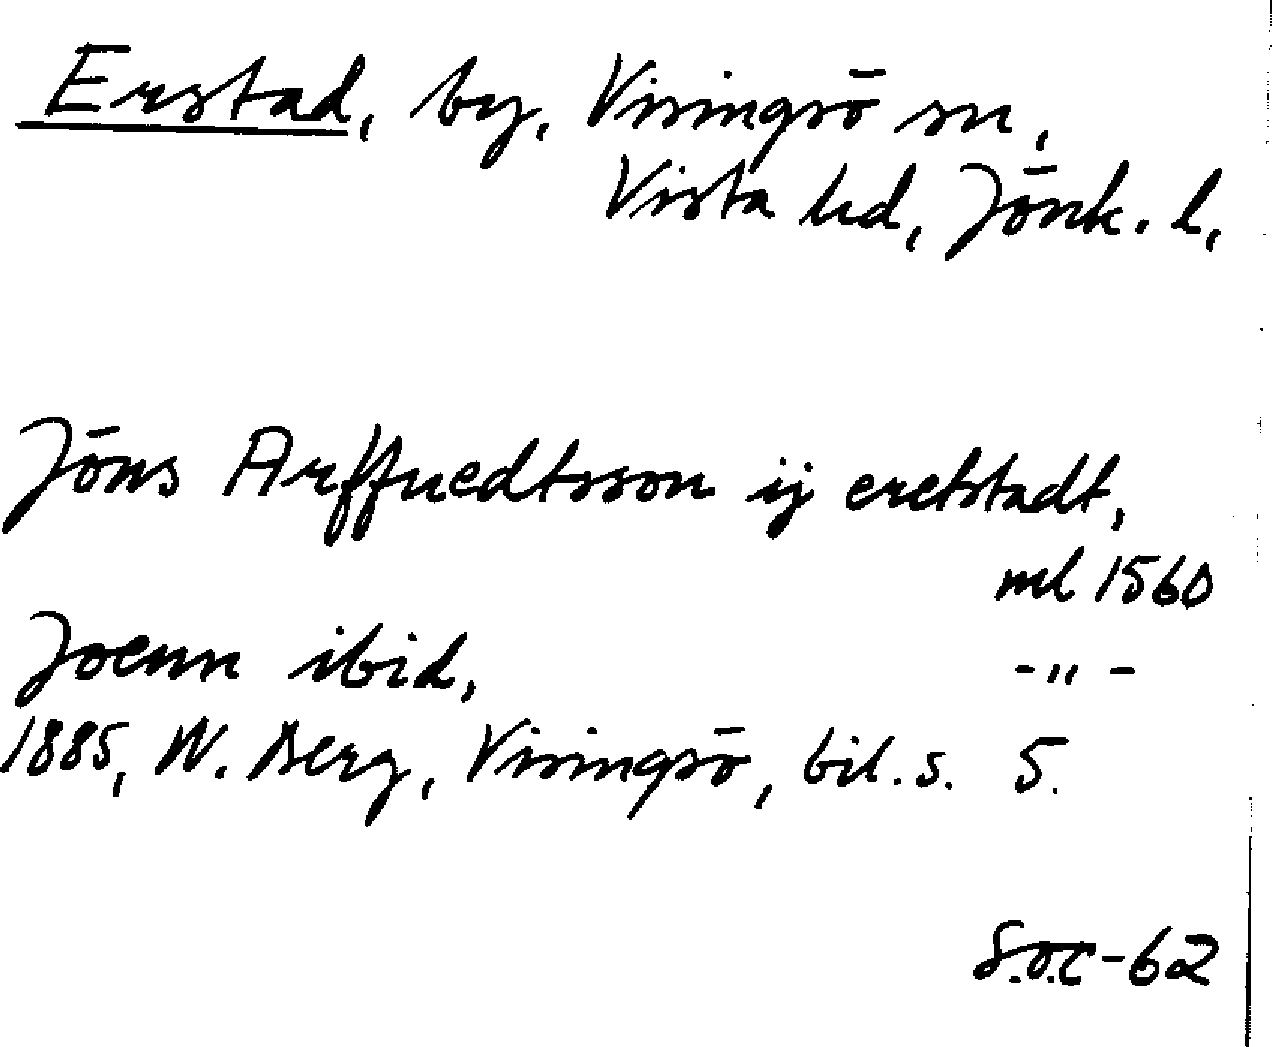 Erstad, by, Visingsö sn,
Vista hd, Jönk. l,
Jöns Arffuedtsson ij eretstadt,
ml 1560
Joenn ibid, -"-
1885, W. Berg, Visingsö, bil. s. 5.
S.O.C-62